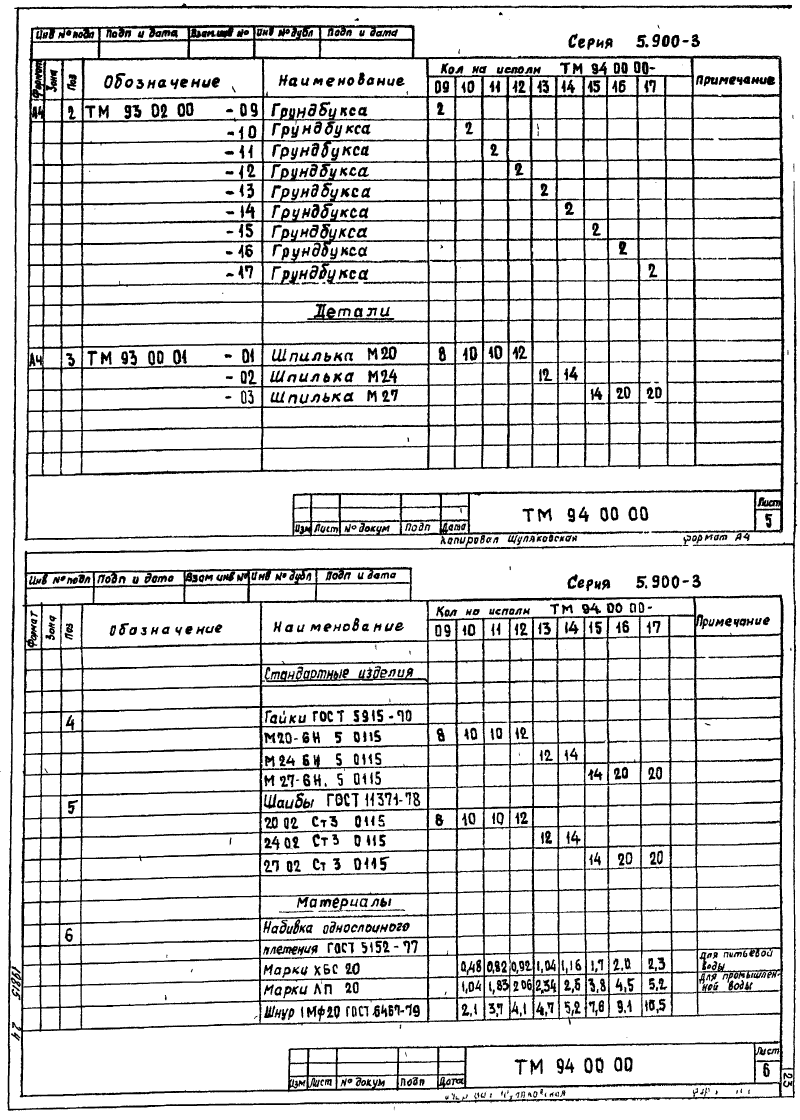 Инв № подл Подп и дата Взам инв № Инв № дубл Подп и дата
Серия 5.900-3
Формат Зона Поз Обозначение Наименование Кол на исполн ТМ 94 00 00- Примечание
09 10 11 12 13 14 15 16 17
А4 2 ТМ 93 02 00 -09 Грундбукса 2
-10 Грундбукса 2
-11 Грундбукса 2
-12 Грундбукса 2
-13 Грундбукса 2
-14 Грундбукса 2
-15 Грундбукса 2
-16 Грундбукса 2
-17 Грундбукса 2
Детали
А4 3 ТМ 93 00 01 -01 Шпилька М20 8 10 10 12
-02 Шпилька М24 12 14
-03 Шпилька М27 14 20 20
Изм Лист № докум Подп Дата
ТМ 94 00 00
Лист
5
Копировал Шуляковская формат А4
Инв № подл Подп и дата Взам инв № Инв № дубл Подп и дата
Серия 5.900-3
Формат Зона Поз Обозначение Наименование Кол на исполн ТМ 94 00 00- Примечание
09 10 11 12 13 14 15 16 17
Стандартные изделия
4 Гайки ГОСТ 5915-70
М20-6Н 5 0115 8 10 10 12
М24 6Н 5 0115 12 14
М 27-6Н. 5 0115 14 20 20
5 Шайбы ГОСТ 11371-78
20 02 Ст3 0115 8 10 10 12
24 02 Ст3 0115 12 14
27 02 Ст 3 0115 14 20 20
Материалы
6 Набивка однослойного
плетения ГОСТ 5152-77
Марки ХБС 20 0,48 0,82 0,92 1,04 1,16 1,7 2,0 2,3 для питьевой воды
Марки ЛП 20 1,04 1,83 2,06 2,34 2,6 3,8 4,5 5,2 для промышленной воды
Шнур 1МФ20 ГОСТ 6467-79 2,1 3,7 4,1 4,7 5,2 7,6 9,1 10,5
Изм Лист № докум Подп Дата
ТМ 94 00 00
Лист
6
23
24